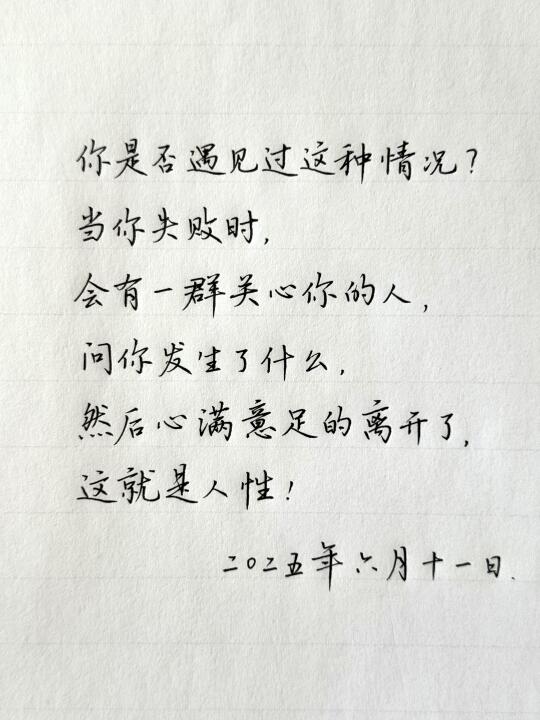 你是否遇见过这种情况？
当你失败时，
会有一群关心你的人，
问你发生了什么，
然后心满意足的离开了，
这就是人性！
二〇二五年六月十一日.